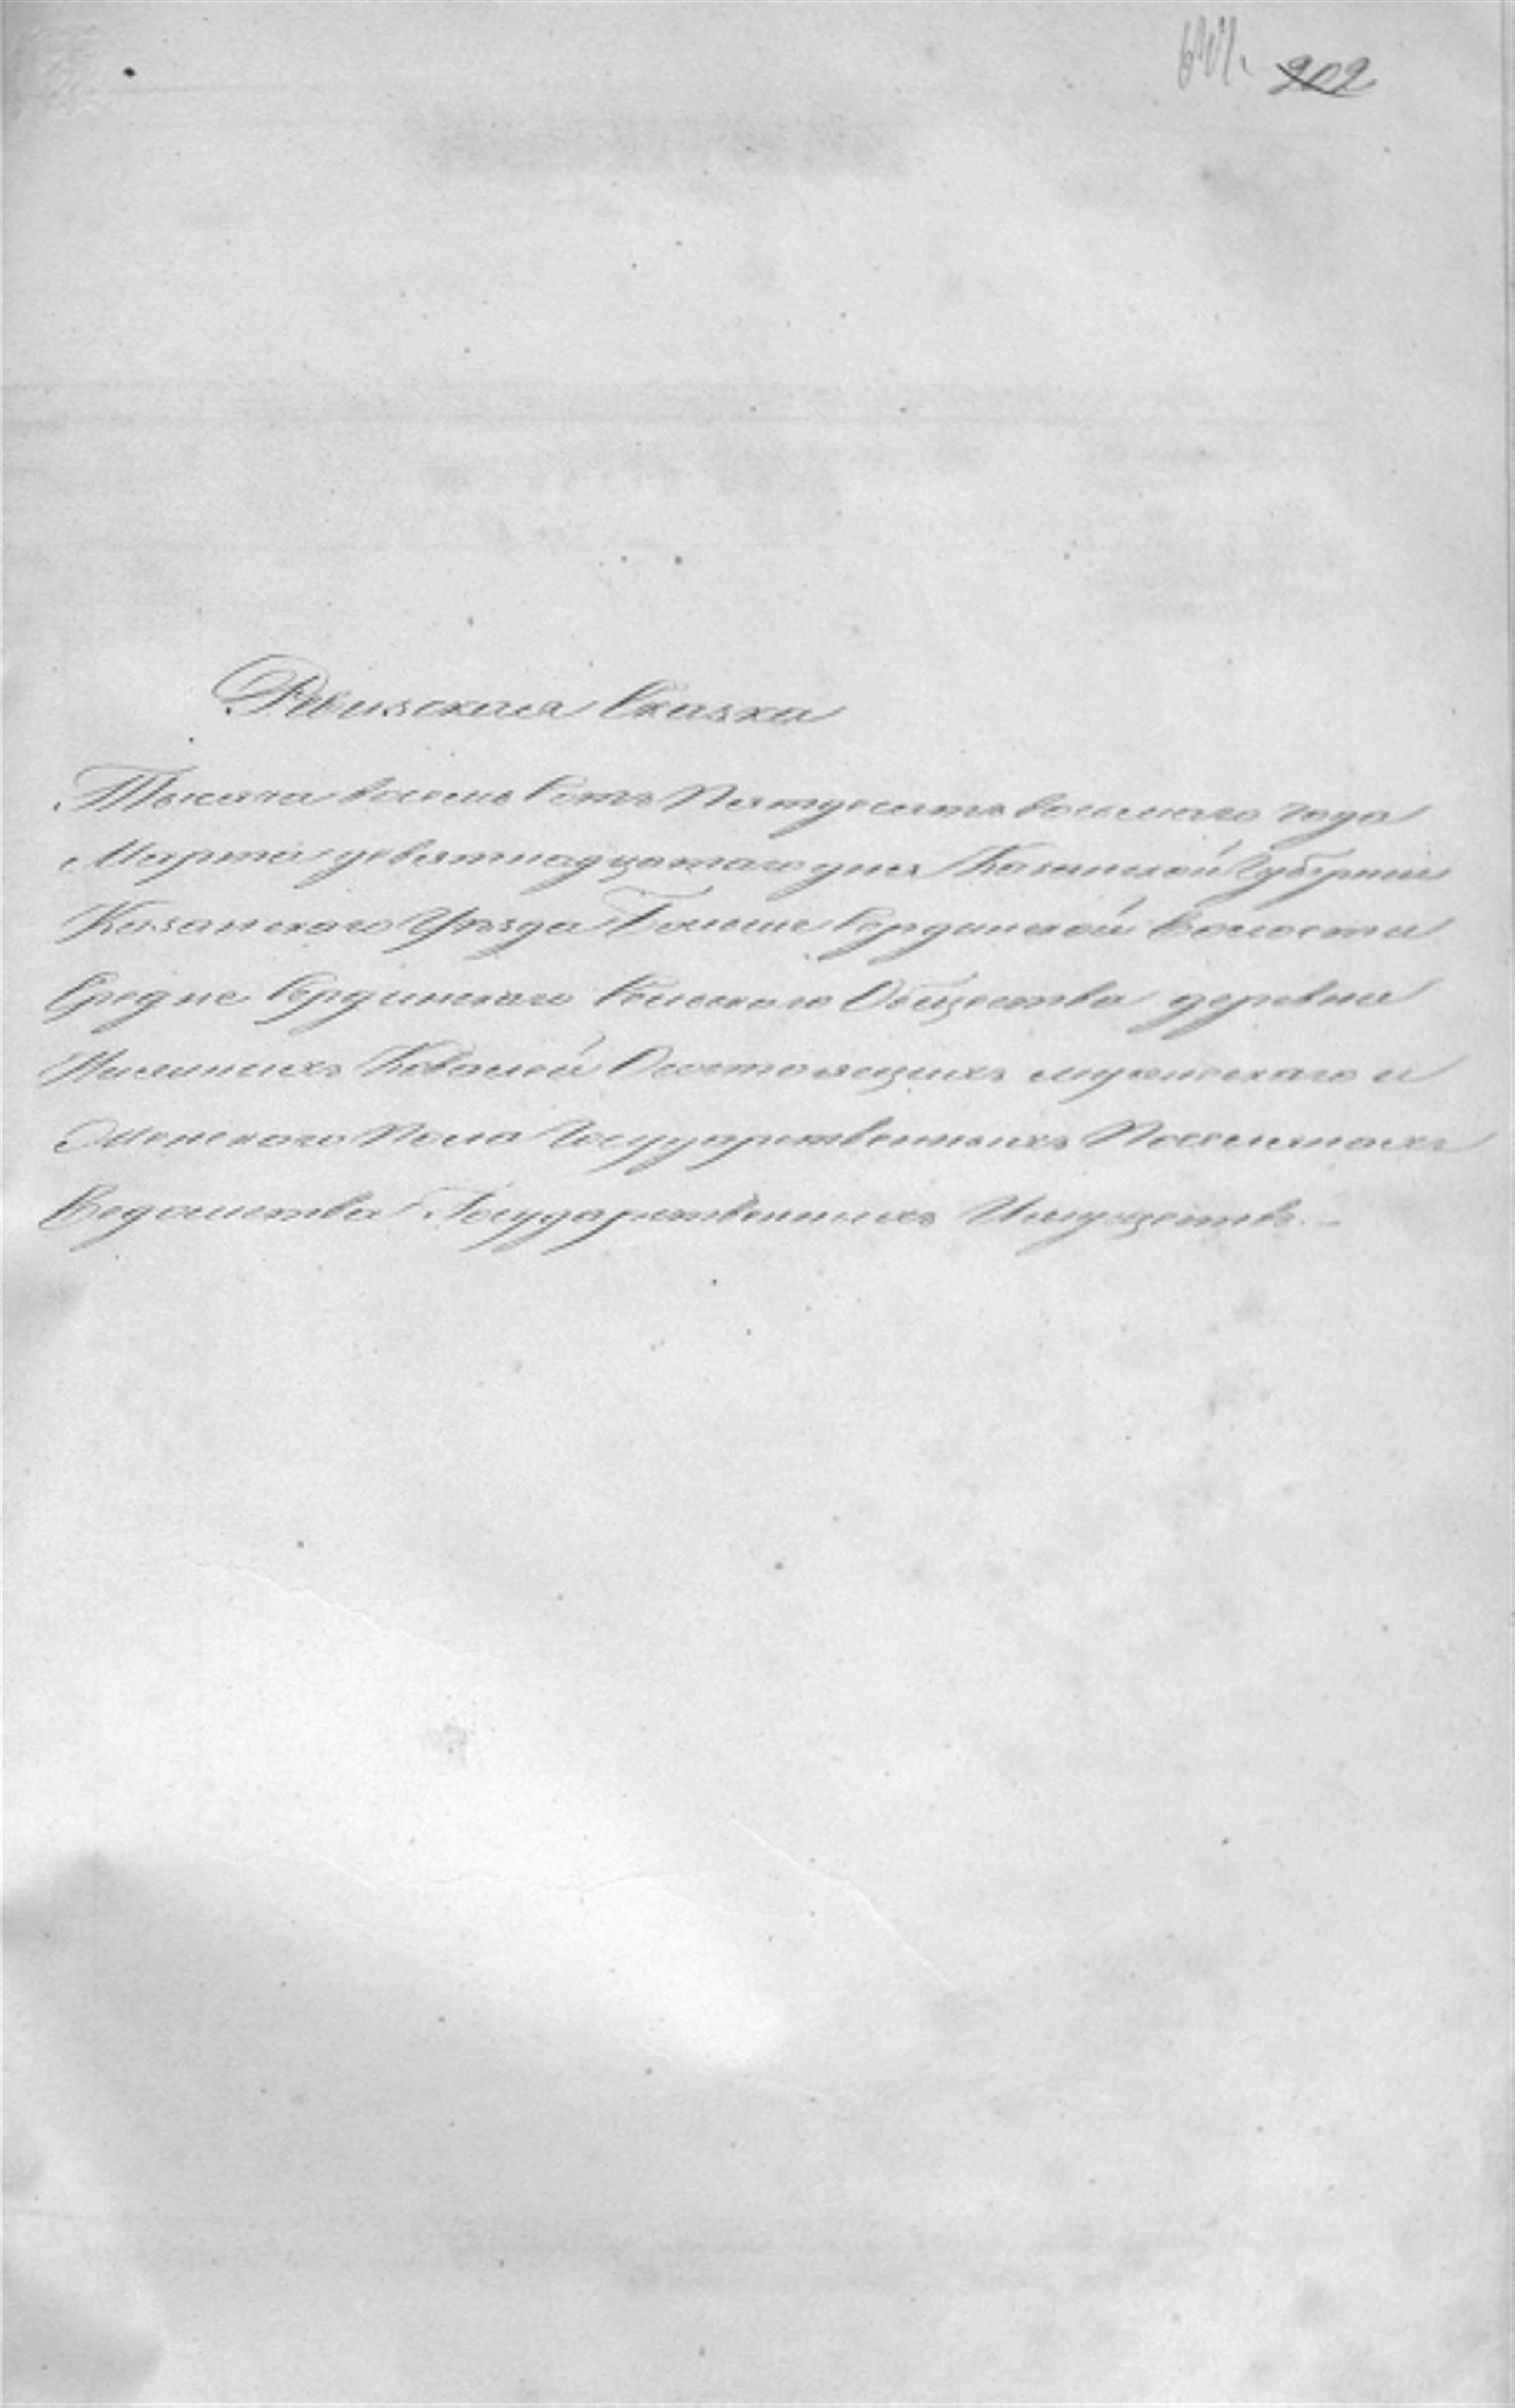 202
Ревизская Сказка
Тысяча восемь сотъ Пятдесятъ восьмаго года
Марта девятнадцатаго дня Казанской Губерніи
Казанскаго Уѣзда Больше Сердинской Волости
Средне Сердинскаго Сельскаго Общества деревни
Ковалей О состоящихъ мужескаго и
Женскаго Пола Государственныхъ Поселянахъ
Ведомства Государственныхъ Имуществъ. —